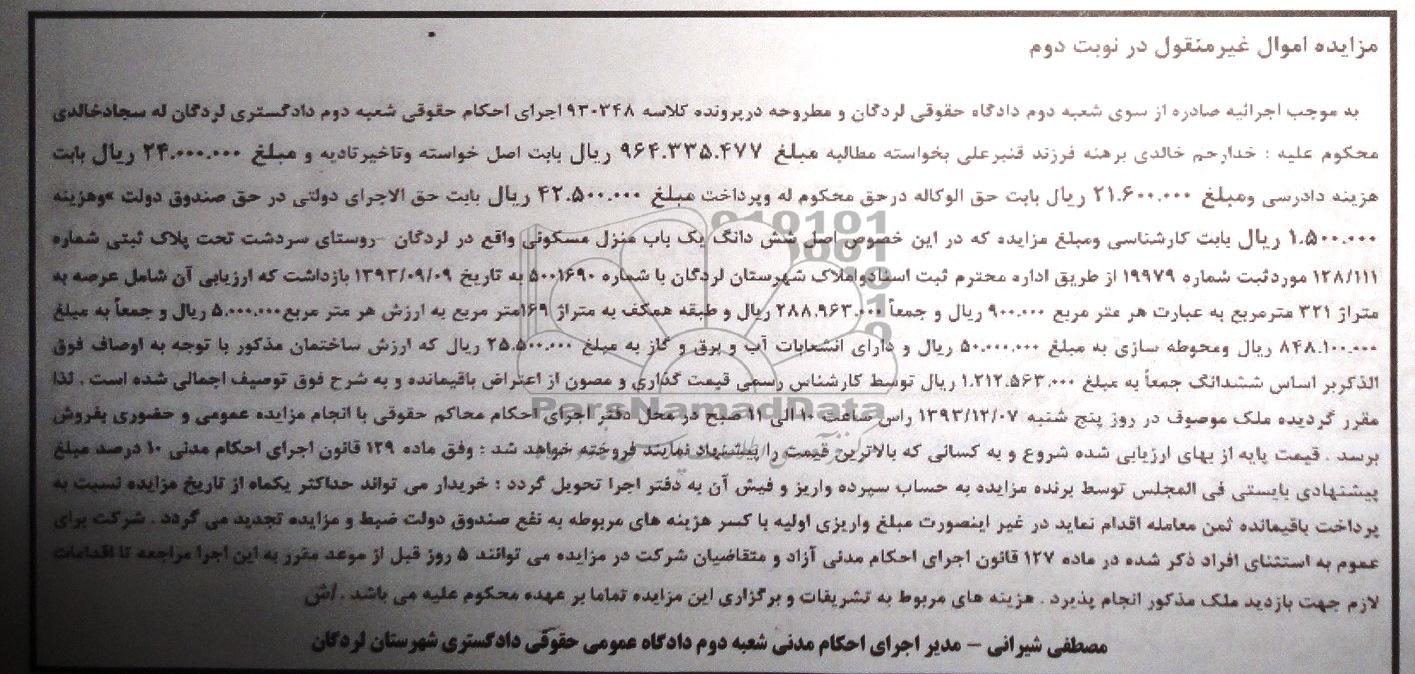 مزایده اموال غیرمنقول در نوبت دوم
به موجب اجرائیه صادره از سوی شعبه دوم دادگاه حقوقی لردگان و مطروحه درپرونده کلاسه ۹۳۰۳۴۸ اجرای احکام حقوقی شعبه دوم دادگستری لردگان له سجادخالدی
محکوم علیه : خدارحم خالدی برهنه فرزند قنبرعلی بخواسته مطالبه مبلغ ۹۶۴.۳۳۵.۴۷۷ ریال بابت اصل خواسته وتاخیرتادیه و مبلغ ۲۴.۰۰۰.۰۰۰ ریال بابت
هزینه دادرسی ومبلغ ۲۱.۶۰۰.۰۰۰ ریال بابت حق الوکاله درحق محکوم له وپرداخت مبلغ ۴۲.۵۰۰.۰۰۰ ریال بابت حق الاجرای دولتی در حق صندوق دولت »وهزینه
۱.۵۰۰.۰۰۰ ریال بابت کارشناسی ومبلغ مزایده که در این خصوص اصل شش دانگ یک باب منزل مسکونی واقع در لردگان -روستای سردشت تحت پلاک ثبتی شماره
۱۲۸/۱۱۱ موردثبت شماره ۱۹۹۷۹ از طریق اداره محترم ثبت اسنادواملاک شهرستان لردگان با شماره ۵۰۰۱۶۹۰ به تاریخ ۱۳۹۳/۰۹/۰۹ بازداشت که ارزیابی آن شامل عرصه به
متراژ ۳۲۱ مترمربع به عبارت هر متر مربع ۹۰۰.۰۰۰ ریال و جمعاً ۲۸۸.۹۶۳.۰۰۰ ریال و طبقه همکف به متراژ ۱۶۹متر مربع به ارزش هر متر مربع ۵.۰۰۰.۰۰۰ ریال و جمعاً به مبلغ
۸۴۸.۱۰۰.۰۰۰ ریال ومحوطه سازی به مبلغ ۵۰.۰۰۰.۰۰۰ ریال و دارای انشعابات آب و برق و گاز به مبلغ ۲۵.۵۰۰.۰۰۰ ریال که ارزش ساختمان مذکور با توجه به اوصاف فوق
الذکربر اساس ششدانگ جمعاً به مبلغ ۱.۲۱۲.۵۶۳.۰۰۰ ریال توسط کارشناس رسمی قیمت گذاری و مصون از اعتراض باقیمانده و به شرح فوق توصیف اجمالی شده است . لذا
مقرر گردیده ملک موصوف در روز پنج شنبه ۱۳۹۳/۱۲/۰۷ راس ساعت ۱۰ الی ۱۱ صبح در محل دفتر اجرای احکام محاکم حقوقی با انجام مزایده عمومی و حضوری بفروش
برسد . قیمت پایه از بهای ارزیابی شده شروع و به کسانی که بالاترین قیمت را پیشنهاد نمایند فروخته خواهد شد ؛ وفق ماده ۱۲۹ قانون اجرای احکام مدنی ۱۰ درصد مبلغ
پیشنهادی بایستی فی المجلس توسط برنده مزایده به حساب سپرده واریز و فیش آن به دفتر اجرا تحویل گردد ؛ خریدار می تواند حداکثر یکماه از تاریخ مزایده نسبت به
پرداخت باقیمانده ثمن معامله اقدام نماید در غیر اینصورت مبلغ واریزی اولیه با کسر هزینه های مربوطه به نفع صندوق دولت ضبط و مزایده تجدید می گردد . شرکت برای
عموم به استثنای افراد ذکر شده در ماده ۱۲۷ قانون اجرای احکام مدنی آزاد و متقاضیان شرکت در مزایده می توانند ۵ روز قبل از موعد مقرر به این اجرا مراجعه تا اقدامات
لازم جهت بازدید ملک مذکور انجام پذیرد . هزینه های مربوط به تشریفات و برگزاری این مزایده تماما بر عهده محکوم علیه می باشد . /ش
مصطفی شیرانی – مدیر اجرای احکام مدنی شعبه دوم دادگاه عمومی حقوقی دادگستری شهرستان لردگان
ParsNamadData